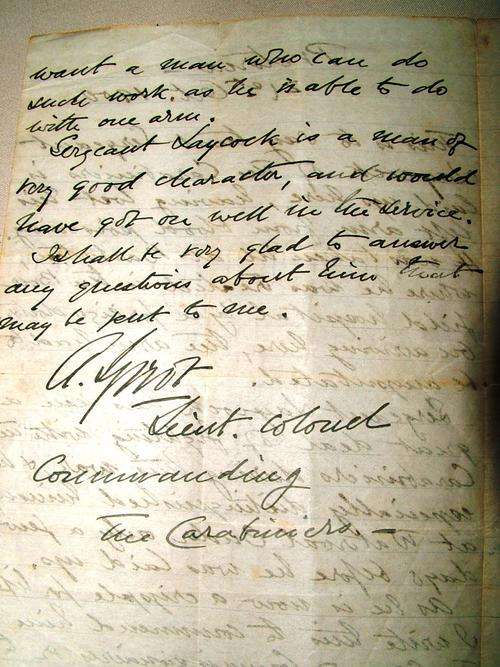 want a man who can do
such work as he is able to do
with one arm.
Sergeant Laycock is a man of
very good character, and would
have got on well in the service.
I shall be very glad to answer
any questions about him that
may be put to me.
A. Sprot
Lieut. Colonel
Commanding
The Carabiniers. —